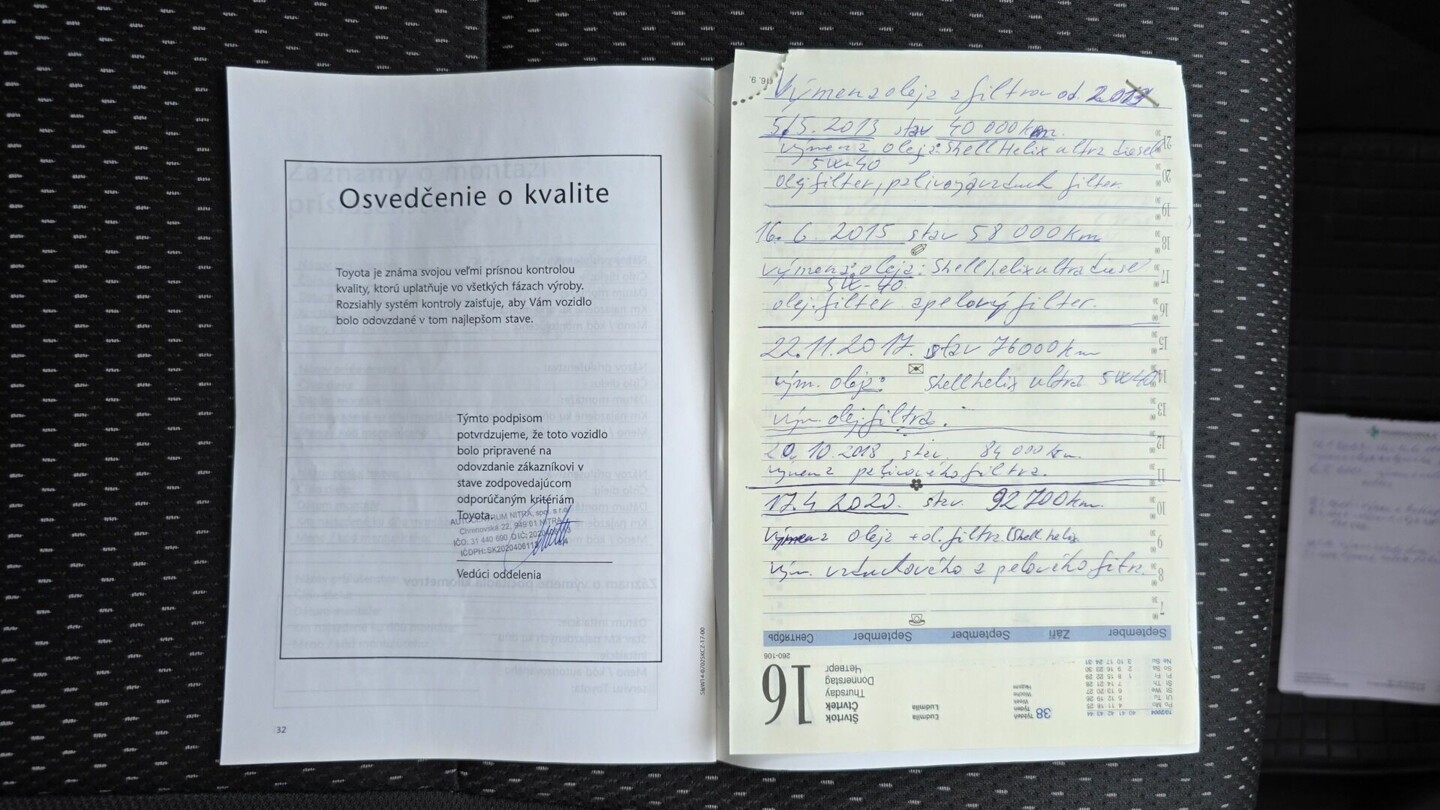 Osvedčenie o kvalite
Toyota je známa svojou veľmi prísnou kontrolou
kvality, ktorú uplatňuje vo všetkých fázach výroby.
Rozsiahly systém kontroly zaisťuje, aby Vám vozidlo
bolo odovzdané v tom najlepšom stave.
Týmto podpisom
potvrdzujeme, že toto vozidlo
bolo pripravené na
odovzdanie zákazníkovi v
stave zodpovedajúcom
odporúčaným kritériám
Toyota.
AUTOCENTRUM NITRA, spol. s r.o.
Chrenovská 22, 949 01 NITRA
Vedúci oddelenia
32
Výmena oleja a filtrov od 2013
5.5. 2013 stav 40 000 km.
výmena oleja: Shell Helix ultra diesel
5W-40
olej filter, palivový a vzduch filter.
16. 6 2015 stav 58 000 km
výmena oleja: Shell helix ultra diesel
5W-40
olej. filter a pelový filter.
22.11.2017. stav 76000 km
vým. oleja: Shell helix ultra 5W-40
vým olej filtra.
20. 10. 2018 stav. 84 000 km.
výmena palivového filtra.
17.4 2020. stav. 92 700 km.
Výmena oleja + ol. filtra (Shell. helix
Vým. vzduchového a pelového filtr.
21
20
19
18
17
16
15
14
13
12
11
10
9
8
7
September Září September September Сентябрь
16
Štvrtok
Čtvrtek
Thursday
Donnerstag
Четверг
Ľudmila
Ludmila
38
Týždeň
Týden
Week
Woche
260-106
10/2004